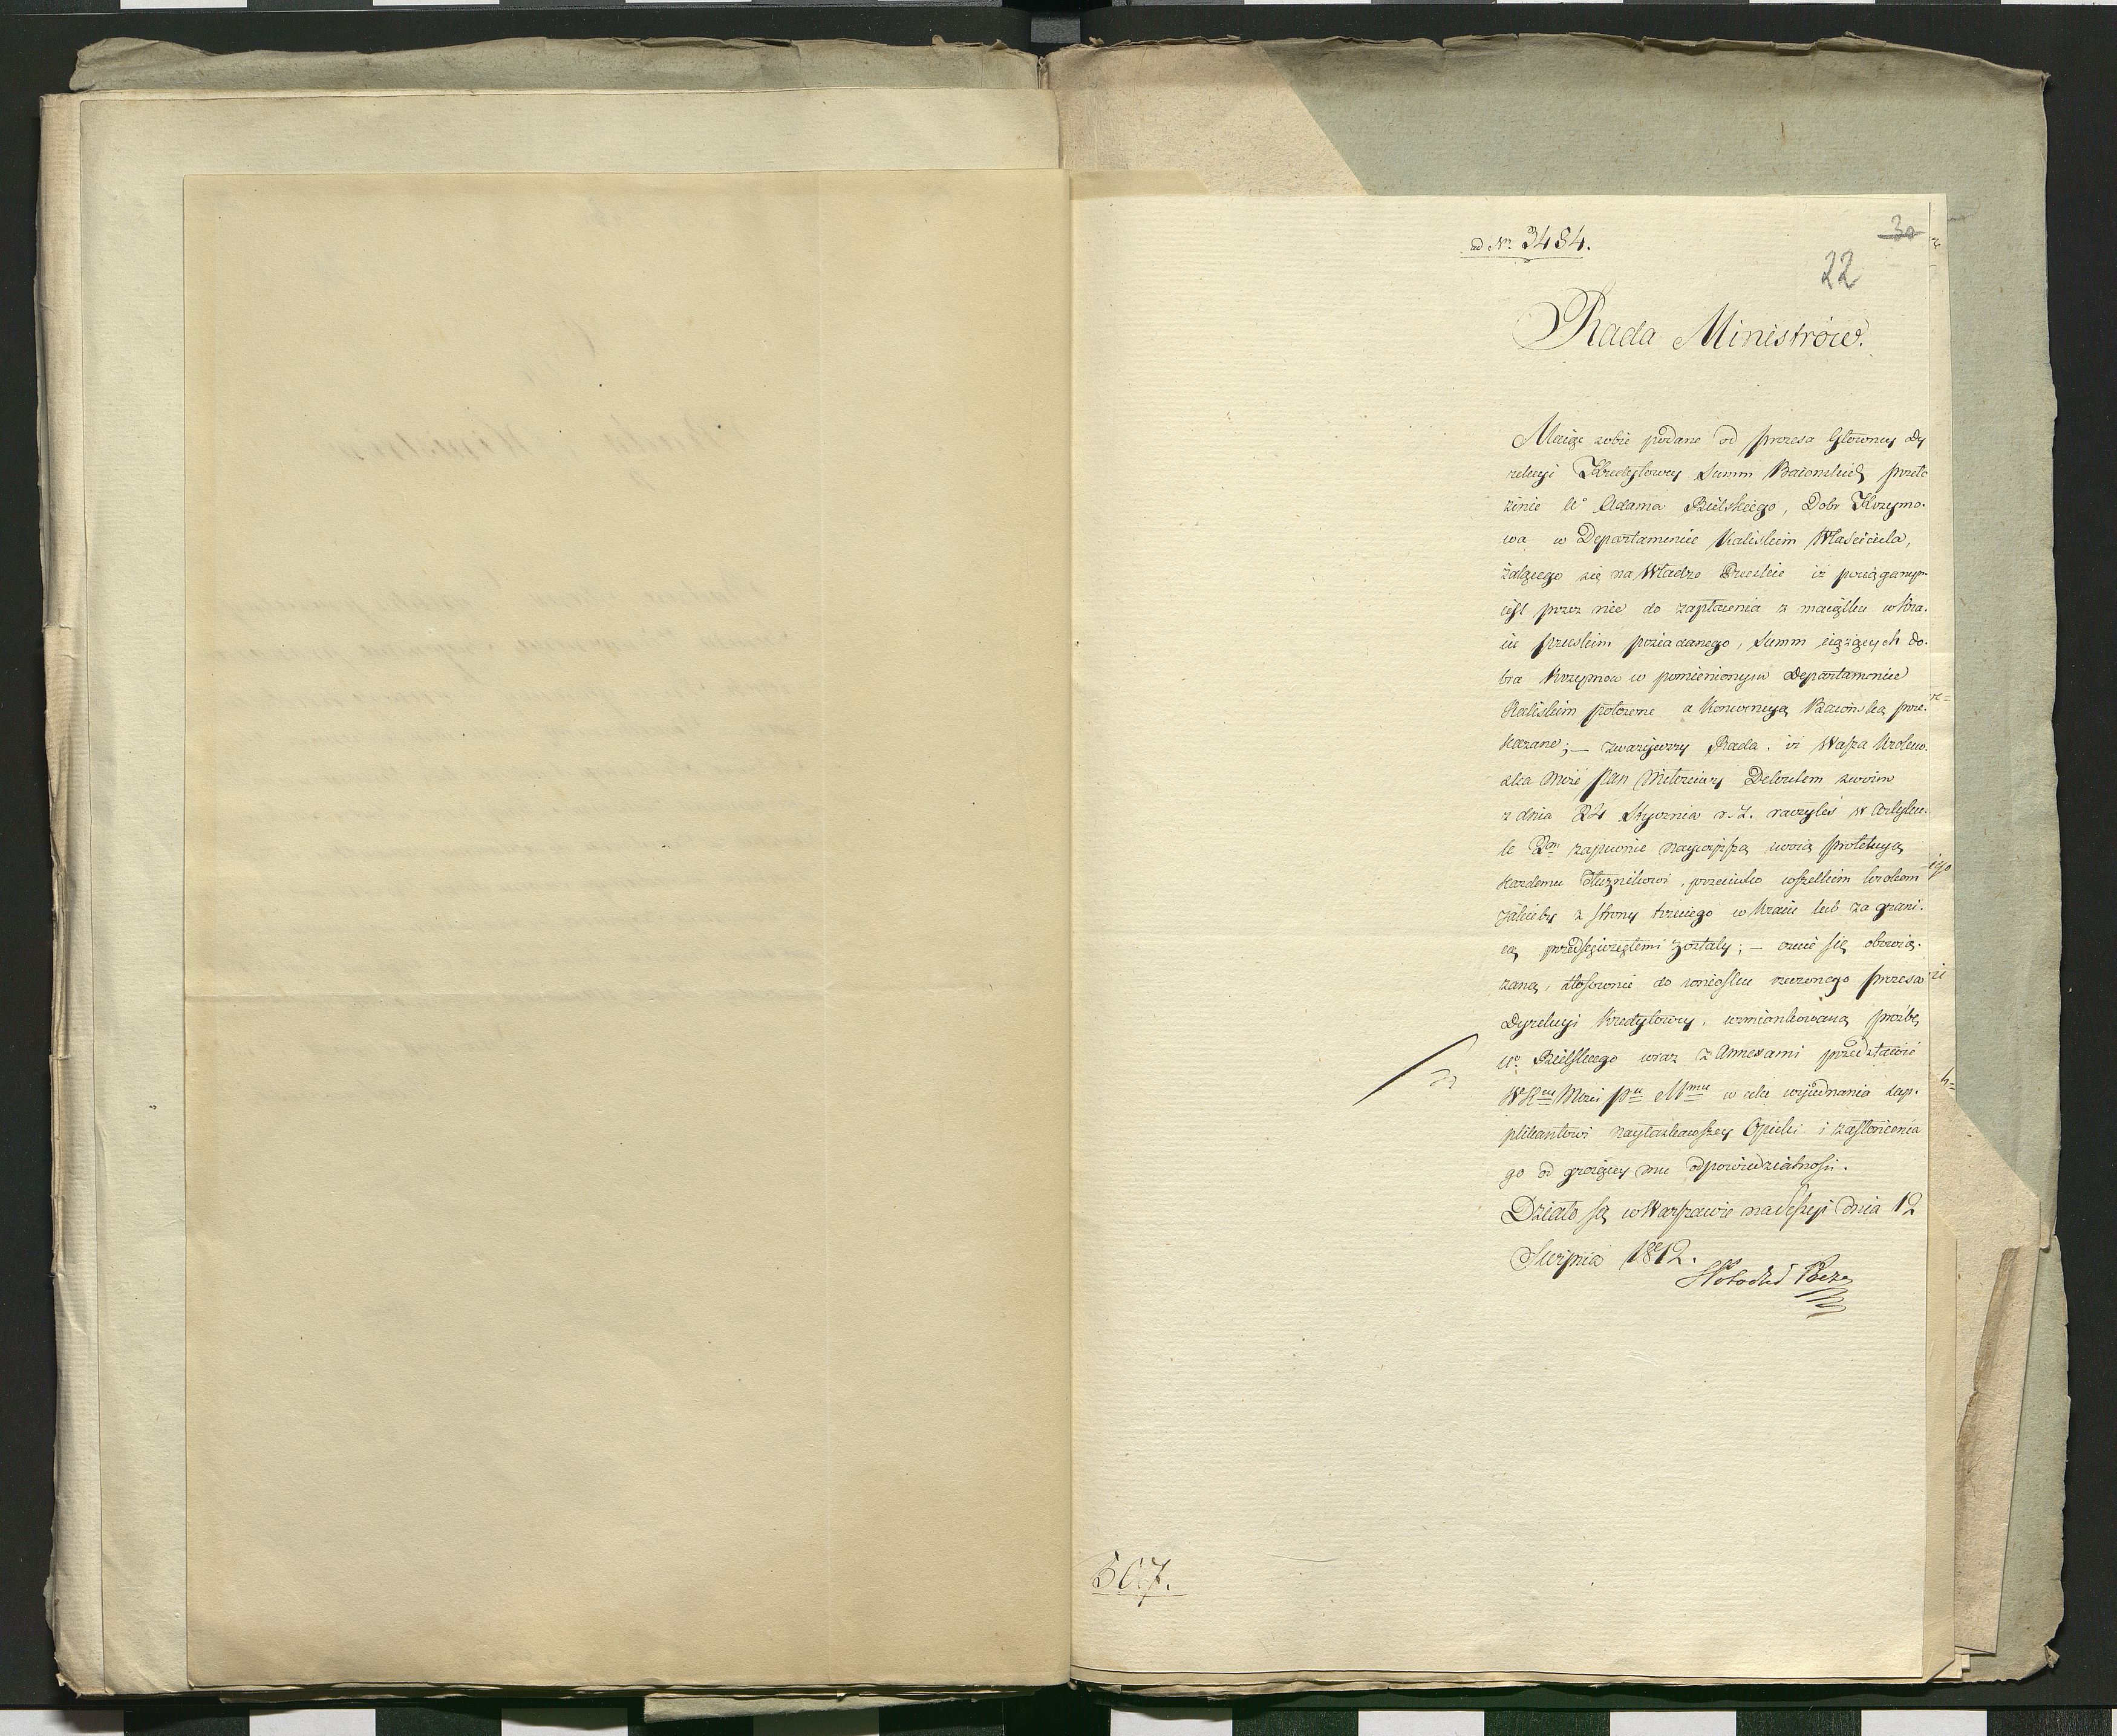 ad No 3484.
30
22
Rada Ministrów.
Maiąc sobie podane od prezesa Główney Dy
rekcyi Kredytowey Summ Baiońskich przeło
żenie Ur Adama Bielskiego, Dobr Krzymo-
wa w Departamencie Kaliskim Właściciela,
żalącego się na Władze Pruskie iż pociąganym
iest przez nie do zapłacenia z maiątku w Kra-
iu pruskim posiadanego, Summ ciążących do-
bra Krzymow w pomienionym Departamencie
Kaliskim położone a Konwencyą Baiońską prze-
kazane; — zważywszy Rada, iż Wasza Krolew-
ska Mość Pan Miłościwy Dekretem swoim
z dnia 24 Stycznia r. z. raczyłeś w Artyku-
le 2m zapewnić naywyższą swoią protekcyą
każdemu Dłużnikowi, przeciwko wszelkim krokom
jakieby z strony trzeciego w Kraiu lub za grani-
cą przedsięwziętemi zostały; — czuie się obowią-
zaną, stosownie do wniosku rzeczonego prezesa
Dyrekcyi Kredytowey, wzmiankowaną prośbę
Ur Bielskiego wraz z Annexami przedstawić
WKey Mości Pu Mmu w celu wyiednania sup-
plikantowi nayłaskawszey Opieki i zasłonienia
go od grożącey mu odpowiedzialności.
Działo się w Warszawie na Sessyi dnia 12
Sierpnia 1812.
507.